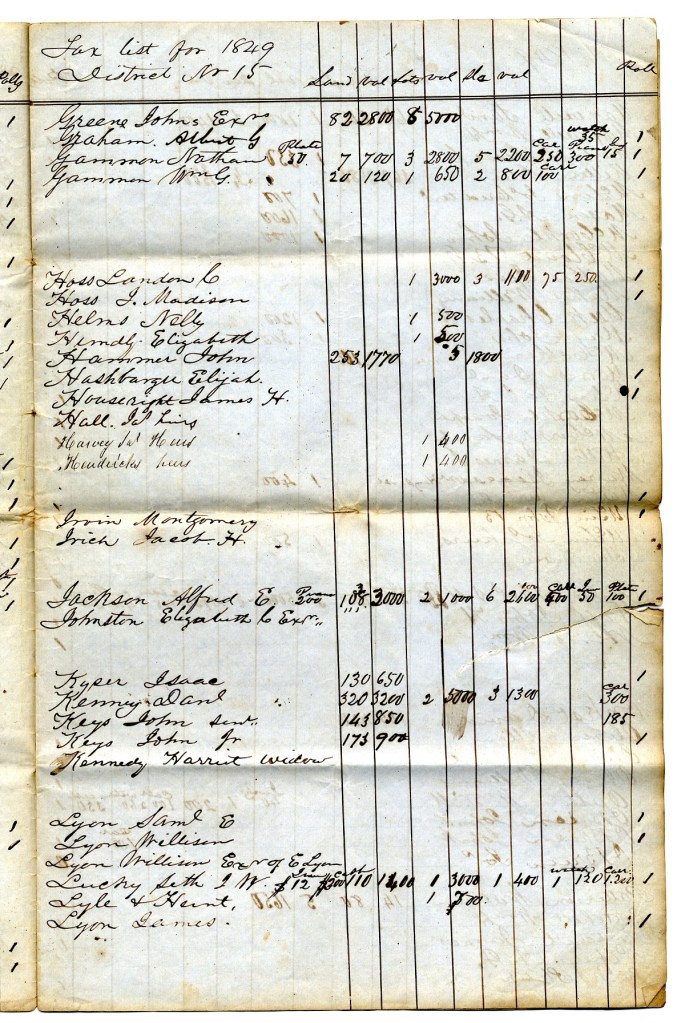 Tax list for 1849
District No 15
Land val Lots val Sla val Poll
Polls
Greene Johns Exrs 82 2800 8 5000
Graham Albert G watch 35 1
Gammon Nathan Plate 50 7 700 3 2800 5 2200 Car 250 Piano 300 15 1
Gammon Wm G. 20 120 1 650 2 800 Care 100 1
Hoss Landon C 1 3000 3 1100 75 250 1
Hoss J. Madison 1
Helms Nelly 1 500
Hendly Elizabeth 1 500
Hammer John 253 1770 5 1800
Hashbarger Elijah. 1
Houseright James H. 1
Hall. Jas heirs
Harvey Jas Heirs 1 400
Hendericks heirs 1 400
Irvin Montgomery 1
Irich Jacob. H. 1
Jackson Alfred E. 200 108 3000 2 1000 6 2600 400 50 Plat 100 1
Johnston Elizabeth C Exr "
Kyser Isaac 130 650 1
Kenney Danl 320 3200 2 5000 3 1300 Car 300
Keys John senr 143 850 185
Keys John Jr 173 900 1
Kennedy Harriet widow
Lyon Saml E 1
Lyon Willison 1
Lyon Willison Exr of E Lyon
Lucky Seth J. W. $12 110 1400 1 3000 1 400 1 120 Car 1200 1
Lyle & Hunt, 1 500
Lyon James. 1